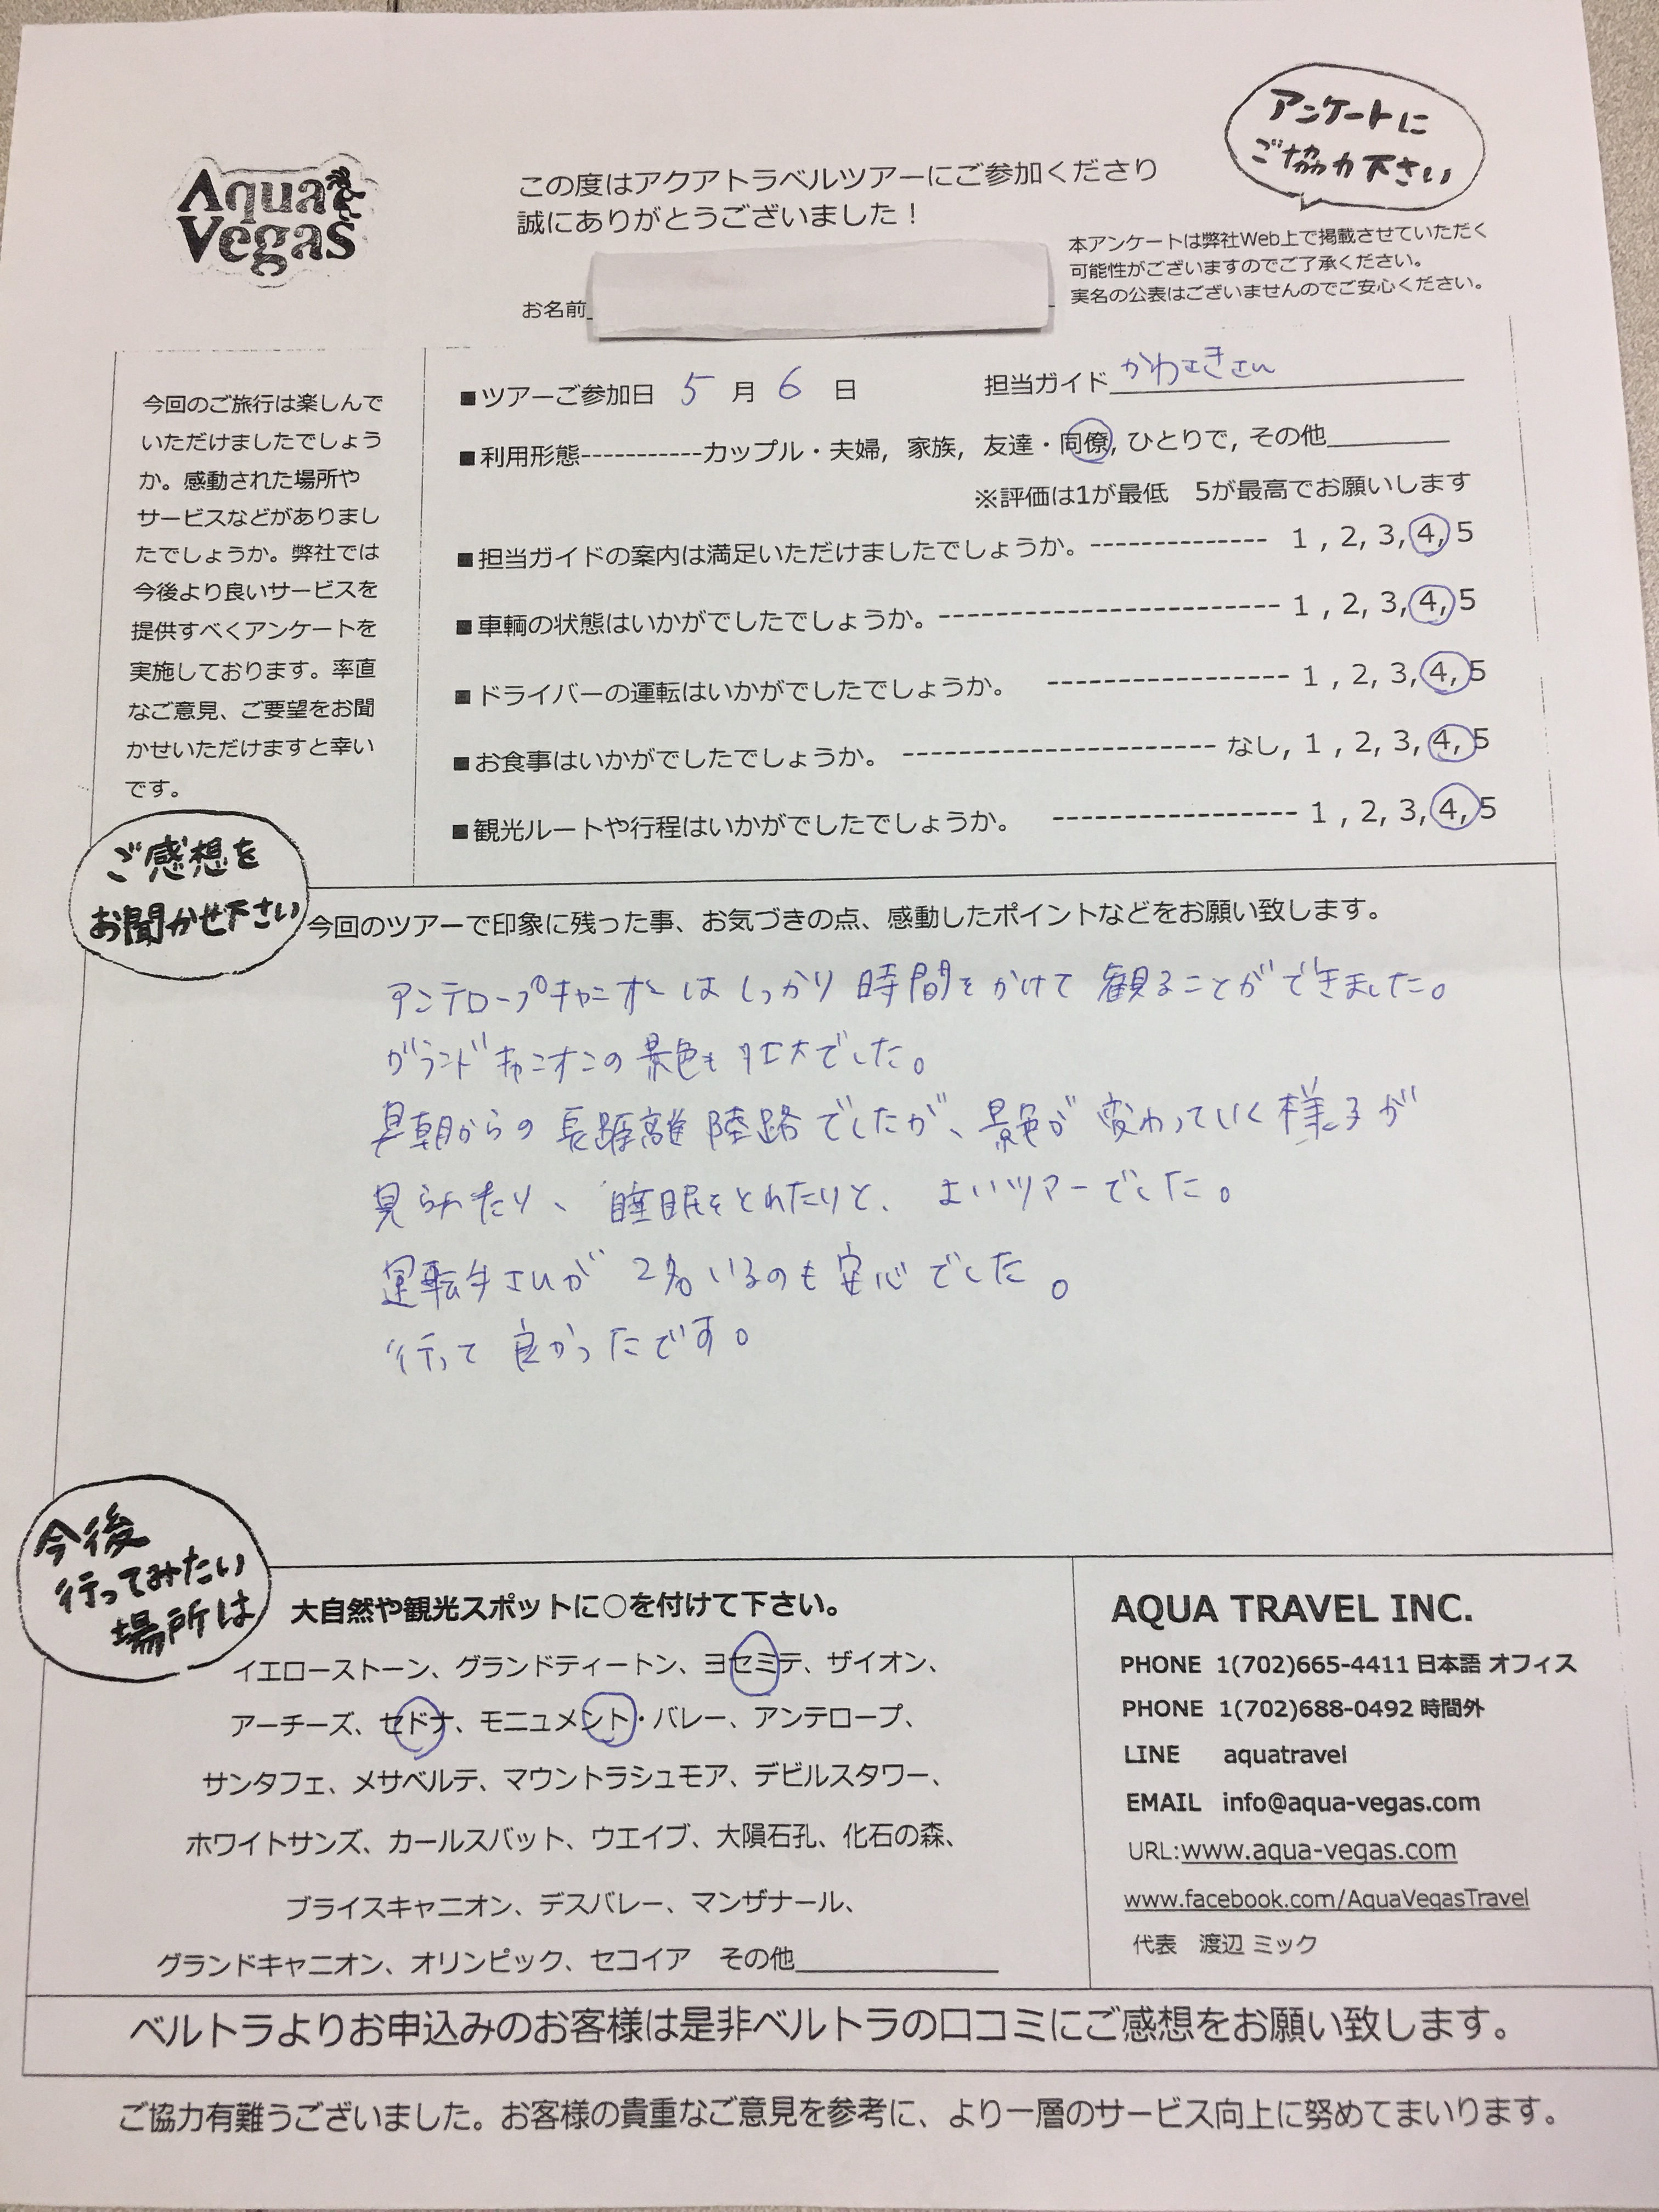 アンケートに
ご協力下さい
Aqua
Vegas
この度はアクアトラベルツアーにご参加くださり
誠にありがとうございました！
本アンケートは弊社Web上で掲載させていただく
可能性がございますのでご了承ください。
実名の公表はございませんのでご安心ください。
お名前
今回のご旅行は楽しんで
いただけましたでしょう
か。感動された場所や
サービスなどがありまし
たでしょうか。弊社では
今後より良いサービスを
提供すべくアンケートを
実施しております。率直
なご意見、ご要望をお聞
かせいただけますと幸い
です。
■ツアーご参加日 5 月 6 日 担当ガイド かわさきさん
■利用形態-----------カップル・夫婦, 家族, 友達・同僚, ひとりで, その他
※評価は1が最低 5が最高でお願いします
■担当ガイドの案内は満足いただけましたでしょうか。-------------- 1 , 2, 3, 4, 5
■車輌の状態はいかがでしたでしょうか。------------------------ 1 , 2, 3, 4, 5
■ドライバーの運転はいかがでしたでしょうか。 ----------------- 1 , 2, 3, 4, 5
■お食事はいかがでしたでしょうか。 ---------------------- なし, 1 , 2, 3, 4, 5
■観光ルートや行程はいかがでしたでしょうか。 ----------------- 1 , 2, 3, 4, 5
ご感想を
お聞かせ下さい
今回のツアーで印象に残った事、お気づきの点、感動したポイントなどをお願い致します。
アンテロープキャニオンはしっかり時間をかけて観ることができました。
グランドキャニオンの景色も壮大でした。
早朝からの長距離陸路でしたが、景色が変わっていく様子が
見られたり、睡眠をとれたりと、よいツアーでした。
運転手さんが2名いるのも安心でした。
行って良かったです。
今後
行ってみたい
場所は
大自然や観光スポットに○を付けて下さい。
イエローストーン、グランドティートン、ヨセミテ、ザイオン、
アーチーズ、セドナ、モニュメント・バレー、アンテロープ、
サンタフェ、メサベルテ、マウントラシュモア、デビルスタワー、
ホワイトサンズ、カールスバット、ウエイブ、大隕石孔、化石の森、
ブライスキャニオン、デスバレー、マンザナール、
グランドキャニオン、オリンピック、セコイア その他
AQUA TRAVEL INC.
PHONE 1(702)665-4411 日本語 オフィス
PHONE 1(702)688-0492 時間外
LINE aquatravel
EMAIL info@aqua-vegas.com
URL:www.aqua-vegas.com
www.facebook.com/AquaVegasTravel
代表 渡辺 ミック
ベルトラよりお申込みのお客様は是非ベルトラの口コミにご感想をお願い致します。
ご協力有難うございました。お客様の貴重なご意見を参考に、より一層のサービス向上に努めてまいります。